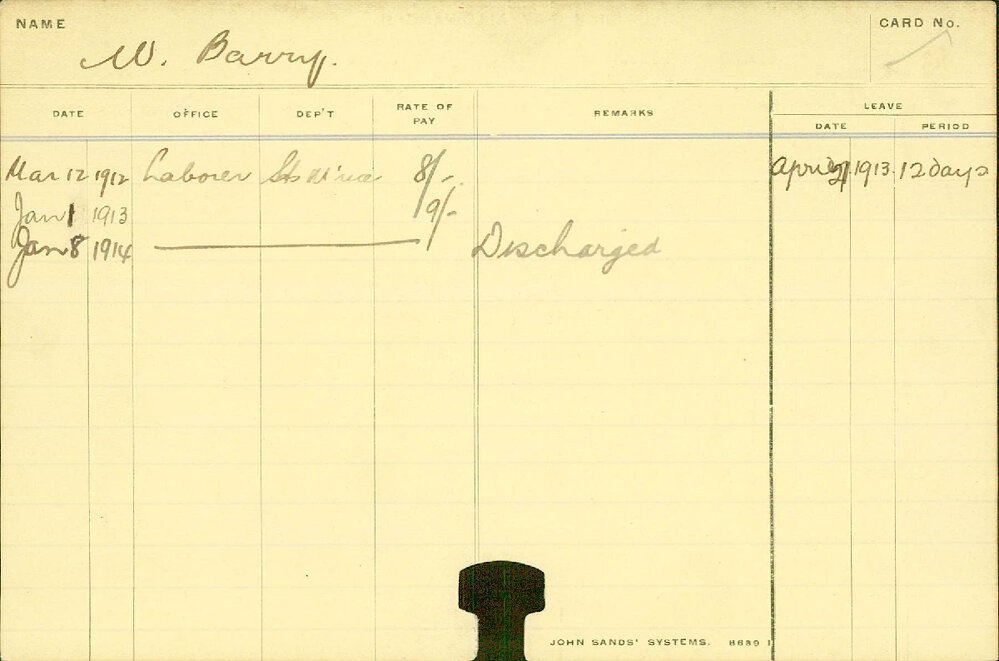 NAME
W. Barry.
CARD No.
DATE OFFICE DEP'T RATE OF PAY REMARKS LEAVE
DATE PERIOD
Mar 12 1912 Laborer 8/- April 1913 12 days
Jan 1 1913 9/-
Jan 8 1914 Discharged
JOHN SANDS' SYSTEMS. 8689